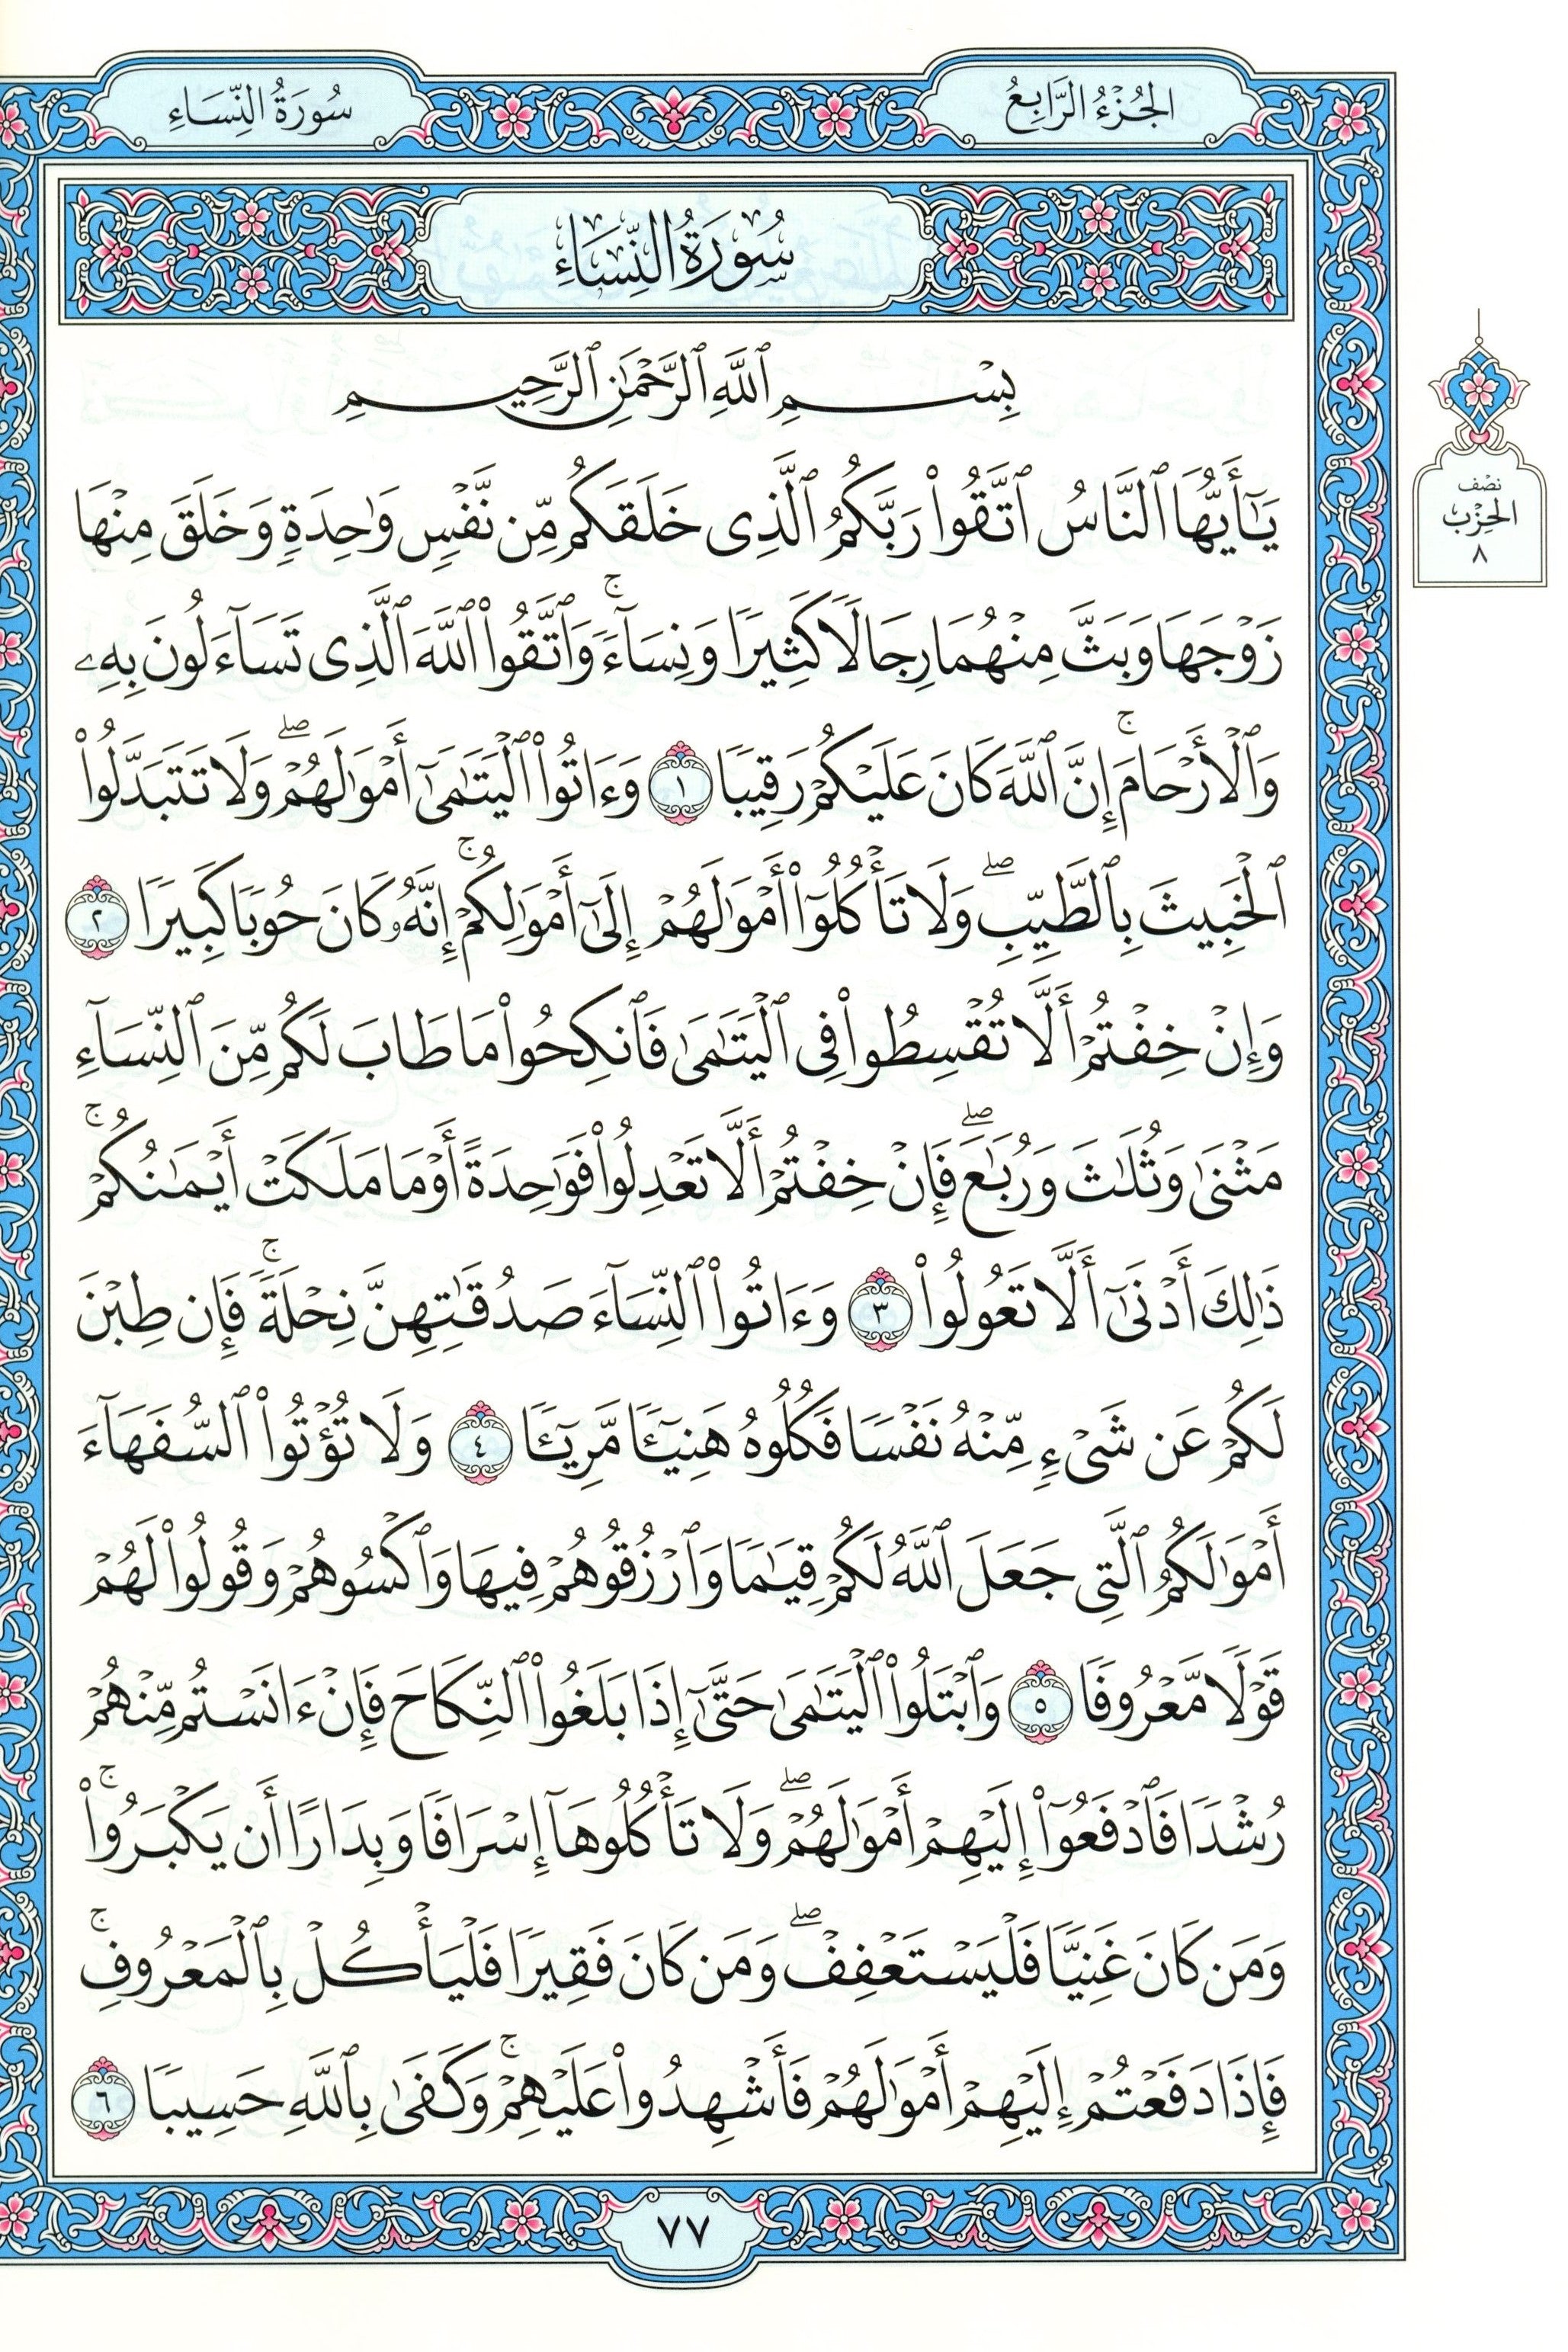 الجُزْءُ الرَّابِعُ
سُورَةُ النِّسَاءِ
سُورَةُ النِّسَاءِ
بِسْمِ ٱللَّهِ ٱلرَّحْمَٰنِ ٱلرَّحِيمِ
يَٰٓأَيُّهَا ٱلنَّاسُ ٱتَّقُوا۟ رَبَّكُمُ ٱلَّذِى خَلَقَكُم مِّن نَّفْسٍ وَٰحِدَةٍ وَخَلَقَ مِنْهَا
زَوْجَهَا وَبَثَّ مِنْهُمَا رِجَالًا كَثِيرًا وَنِسَآءً ۚ وَٱتَّقُوا۟ ٱللَّهَ ٱلَّذِى تَسَآءَلُونَ بِهِۦ
وَٱلْأَرْحَامَ ۚ إِنَّ ٱللَّهَ كَانَ عَلَيْكُمْ رَقِيبًا ١ وَءَاتُوا۟ ٱلْيَتَٰمَىٰٓ أَمْوَٰلَهُمْ ۖ وَلَا تَتَبَدَّلُوا۟
ٱلْخَبِيثَ بِٱلطَّيِّبِ ۖ وَلَا تَأْكُلُوٓا۟ أَمْوَٰلَهُمْ إِلَىٰٓ أَمْوَٰلِكُمْ ۚ إِنَّهُۥ كَانَ حُوبًا كَبِيرًا ٢
وَإِنْ خِفْتُمْ أَلَّا تُقْسِطُوا۟ فِى ٱلْيَتَٰمَىٰ فَٱنكِحُوا۟ مَا طَابَ لَكُم مِّنَ ٱلنِّسَآءِ
مَثْنَىٰ وَثُلَٰثَ وَرُبَٰعَ ۖ فَإِنْ خِفْتُمْ أَلَّا تَعْدِلُوا۟ فَوَٰحِدَةً أَوْ مَا مَلَكَتْ أَيْمَٰنُكُمْ ۚ
ذَٰلِكَ أَدْنَىٰٓ أَلَّا تَعُولُوا۟ ٣ وَءَاتُوا۟ ٱلنِّسَآءَ صَدُقَٰتِهِنَّ نِحْلَةً ۚ فَإِن طِبْنَ
لَكُمْ عَن شَىْءٍ مِّنْهُ نَفْسًا فَكُلُوهُ هَنِيٓـًٔا مَّرِيٓـًٔا ٤ وَلَا تُؤْتُوا۟ ٱلسُّفَهَآءَ
أَمْوَٰلَكُمُ ٱلَّتِى جَعَلَ ٱللَّهُ لَكُمْ قِيَٰمًا وَٱرْزُقُوهُمْ فِيهَا وَٱكْسُوهُمْ وَقُولُوا۟ لَهُمْ
قَوْلًا مَّعْرُوفًا ٥ وَٱبْتَلُوا۟ ٱلْيَتَٰمَىٰ حَتَّىٰٓ إِذَا بَلَغُوا۟ ٱلنِّكَاحَ فَإِنْ ءَانَسْتُم مِّنْهُمْ
رُشْدًا فَٱدْفَعُوٓا۟ إِلَيْهِمْ أَمْوَٰلَهُمْ ۖ وَلَا تَأْكُلُوهَآ إِسْرَافًا وَبِدَارًا أَن يَكْبَرُوا۟ ۚ
وَمَن كَانَ غَنِيًّا فَلْيَسْتَعْفِفْ ۖ وَمَن كَانَ فَقِيرًا فَلْيَأْكُلْ بِٱلْمَعْرُوفِ ۚ
فَإِذَا دَفَعْتُمْ إِلَيْهِمْ أَمْوَٰلَهُمْ فَأَشْهِدُوا۟ عَلَيْهِمْ ۚ وَكَفَىٰ بِٱللَّهِ حَسِيبًا ٦
٧٧
نصف
الحِزْب
٨